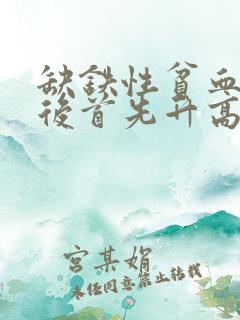 缺鉄性貧血
後首先升高
宫某娟
未经同意禁止转载